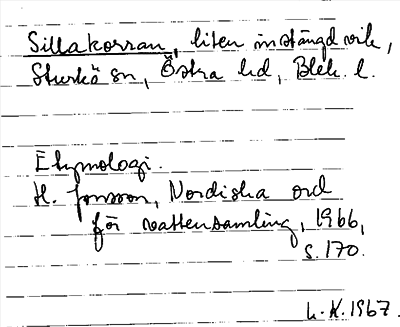 Sillakorran, liten instängd vik,
Sturkö sn, Östra hd, Blek. l.
Etymologi.
H. Jonsson, Nordiska ord
för vattensamling, 1966,
s. 170.
L.K. 1967.